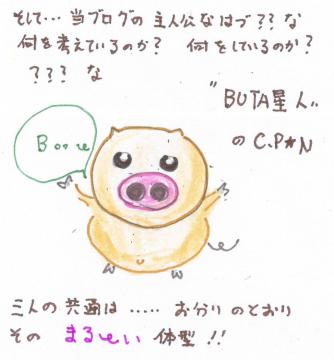 そして… 当ブログの主人公なはづ?? な
何を考えているのか? 何をしているのか?
??? な
"BUTA星人"
の C.P☆N
Boo
三人の共通は ‥‥‥ お分りのとおり
その まるーい 体型 !!